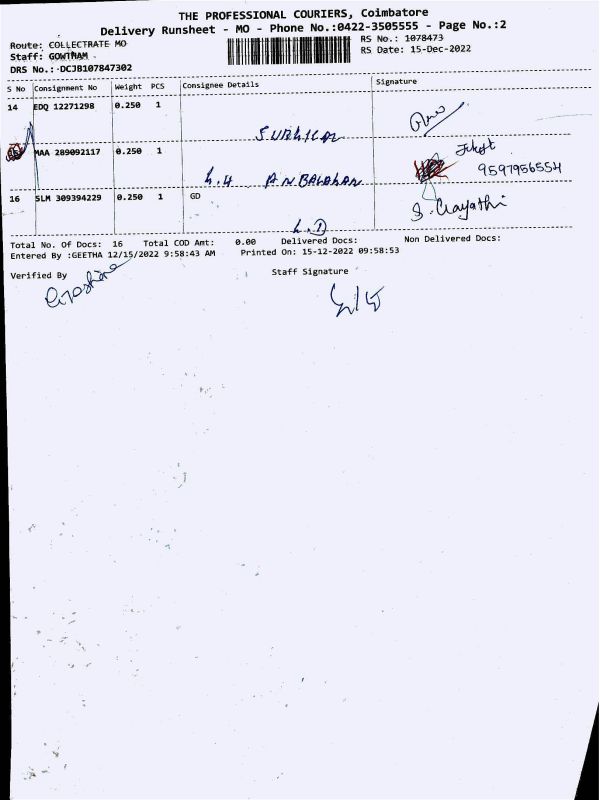 THE PROFESSIONAL COURIERS, Coimbatore
Delivery Runsheet - MO - Phone No.:0422-3505555 - Page No.:2
Route: COLLECTRATE MO
RS No.: 1078473
Staff: GOWTHAM
RS Date: 15-Dec-2022
DRS No.: DCJB107847302
S No Consignment No Weight PCS Consignee Details Signature
14 EDQ 12271298 0.250 1
MAA 289092117 0.250 1
9597956554
16 SLM 309394229 0.250 1 GD
S. Gayathi
Total No. Of Docs: 16 Total COD Amt: 0.00 Delivered Docs: Non Delivered Docs:
Entered By :GEETHA 12/15/2022 9:58:43 AM Printed On: 15-12-2022 09:58:53
Verified By Staff Signature